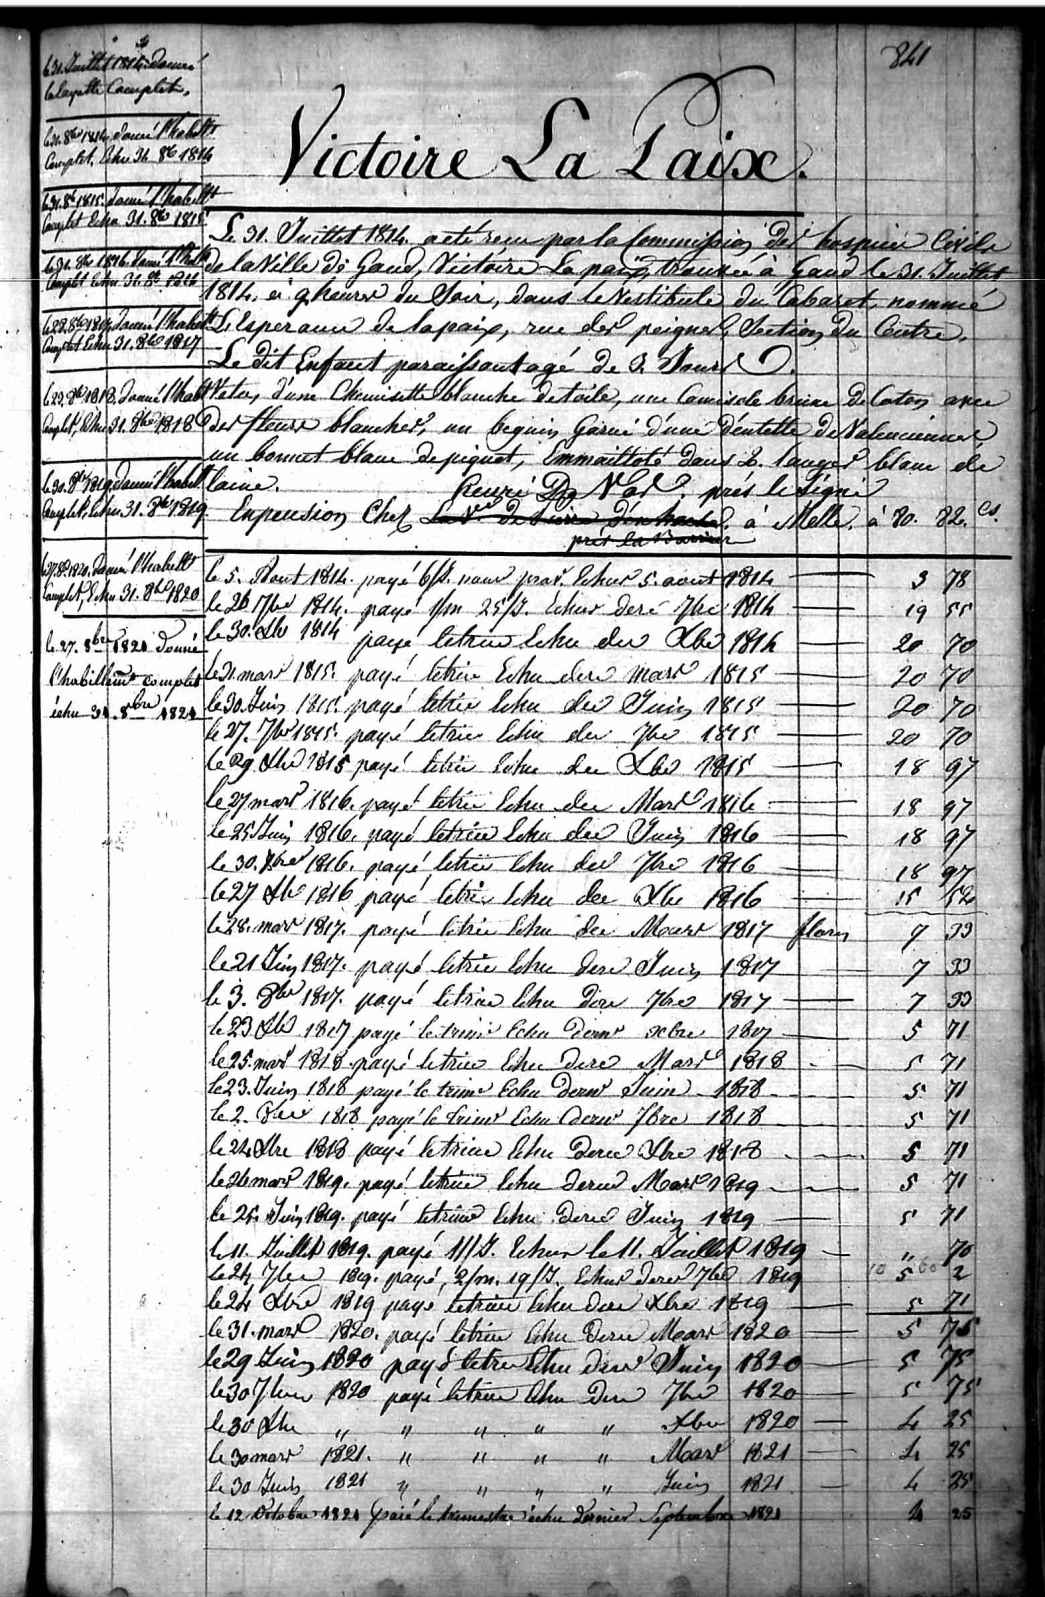 841
Victoire La Paix.
le 31. Juillet 1814. donné
la layette Complette,
le 31. 8bre 1814. donné l'habillt
Complet, Echu 31. 8b 1814
le 31. 8b 1815. donné l'habillt
Complet Echu 31. 8bre 1815
le 31. 8bre 1816. donné l'habillt
Complet Echu 31. 8b 1816
le 22. 8bre 1817. donné l'habillt
Complet Echu 31. 8bre 1817
le 22. 8bre 1818. donné l'habillt
Complet, Echu 31. 8bre 1818
le 30. 8bre 1819 donné l'habillt
Complet, Echu 31. 8bre 1819
le 27. 8b. 1820. donné l'habillt
Complet, Echu 31. 8bre 1820
le 27. 8bre 1821 donné
l'habillemt complet
échu 31. 8bre 1821
Le 31. Juillet 1814. a eté recu par la Commission des hospices Civils
de la Ville de Gand, Victoire La paix, trouvée à Gand le 31. Juillet
1814. à 9 heures du Soir, dans le Vestibule du Cabaret, nommé
L'Esperance de la paix, rue des peignes, Section du Centre.
Le dit Enfant paraissant agé de 3. Jours
Vetu, d'une Chemisette blanche de toile, une Camisole brune de Coton avec
des fleurs blanches, un beguin garni d'une dentelle de Valenciennes
un bonnet blanc de piquet, Emmailloté dans 2. langes blanc de
laine. près le Signé
En pension Chez La Ve à Melle. à 80. 82. cs.
près la Barrière
le 5. Aout 1814. payé 6/J. nour prov. Echus 5. aout 1814 — 3 78
le 26 7bre 1814. payé 1/m 25/J. Echus dere 7bre 1814 — 19 55
le 30. Xbre 1814 payé letrim Echu der Xbre 1814 — 20 70
le 31. mars 1815. payé letrim Echu dere mars 1815 — 20 70
le 30. Juin 1815. payé letrim Echu der Juin 1815 — 20 70
le 27. 7bre 1815. payé letrim Echu der 7bre 1815 — 20 70
le 29 Xbre 1815 payé letrim Echu der Xbre 1815 — 18 97
le 27 mars 1816. payé letrim Echu der Mars 1816 — 18 97
le 25 Juin 1816. payé letrim Echu der Juin 1816 — 18 97
le 30. 7bre 1816. payé letrim Echu der 7bre 1816 — 18 97
le 27 Xbre 1816 payé letrim Echu der Xbre 1816 — 15 52
le 28. mars 1817. payé letrim Echu der Mars 1817 florins 7 33
le 21 Juin 1817. payé letrim Echu dere Juin 1817 — 7 33
le 3. 8bre 1817. payé letrim Echu dere 7bre 1817 — 7 33
le 23 Xbre 1817 payé le trimr Echu dernr Xbre 1817 — 5 71
le 25. mars 1818. payé letrim Echu dere Mars 1818 — 5 71
le 23. Juin 1818 payé le trimr Echu dernr Juin 1818 — 5 71
le 2. 8bre 1818 payé le trimr Echu dernr 7bre 1818 — 5 71
le 24 Xbre 1818 payé letrim Echu dere Xbre 1818 — 5 71
le 26 mars 1819. payé letrim Echu dere Mars 1819 — 5 71
le 25. Juin 1819. payé letrim Echu dere Juin 1819 — 5 71
le 11. Juillet 1819. payé 11/J. Echus le 11. Juillet 1819 — " 70
le 24 7bre 1819. payé, 2/m. 19/J. Echus dere 7bre 1819 5 2
le 24 Xbre 1819 payé letrim Echu dere Xbre 1819 — 5 71
le 31. mars 1820. payé letrim Echu dere Mars 1820 — 5 75
le 29 Juin 1820 payé letrim Echu dere Juin 1820 — 5 75
le 30 7bre 1820 payé letrim Echu dere 7bre 1820 — 5 75
le 30 Xbre " " " " " Xbre 1820 — 4 25
le 30 mars 1821. " " " " Mars 1821 — 4 25
le 30 Juin 1821 " " " " Juin 1821 — 4 25
le 12 Octobre 1821 payé le trimestre échu dernier Septembre 1821 4 25